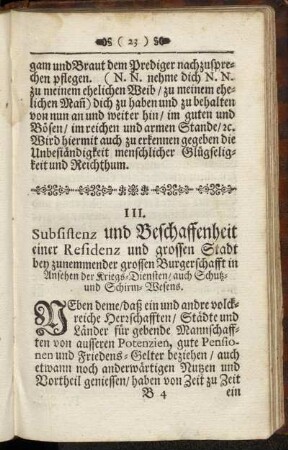 ( 23 )
gam und Braut dem Prediger nachzuspre-
chen pflegen. ( N. N. nehme dich N. N.
zu meinem ehelichen Weib / zu meinem ehe-
lichen Mañ) dich zu haben und zu behalten
von nun an und weiter hin / im guten und
Bösen / im reichen und armen Stande/ꝛc.
Wird hiermit auch zu erkennen gegeben die
Unbeständigkeit menschlicher Glügselig-
keit und Reichthum.
III.
Subsistenz und Beschaffenheit
einer Residenz und grossen Stadt
bey zunemmender grossen Burgerschafft in
Ansehen der Kriegs-Diensten/ auch Schutz-
und Schirm-Wesens.
NEben deme/ daß ein und andre volck-
reiche Herrschafften / Städte und
Länder für gebende Mannschaff-
ten von ausseren Potenzien, gute Pensio-
nen und Friedens-Gelter beziehen / auch
etwann noch anderwärtigen Nutzen und
Vortheil geniessen/ haben von Zeit zu Zeit
B 4 ein